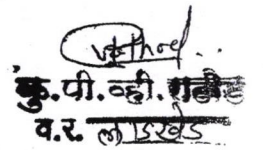 कु.पी.व्ही.राठोड
व.र. लाडखेड